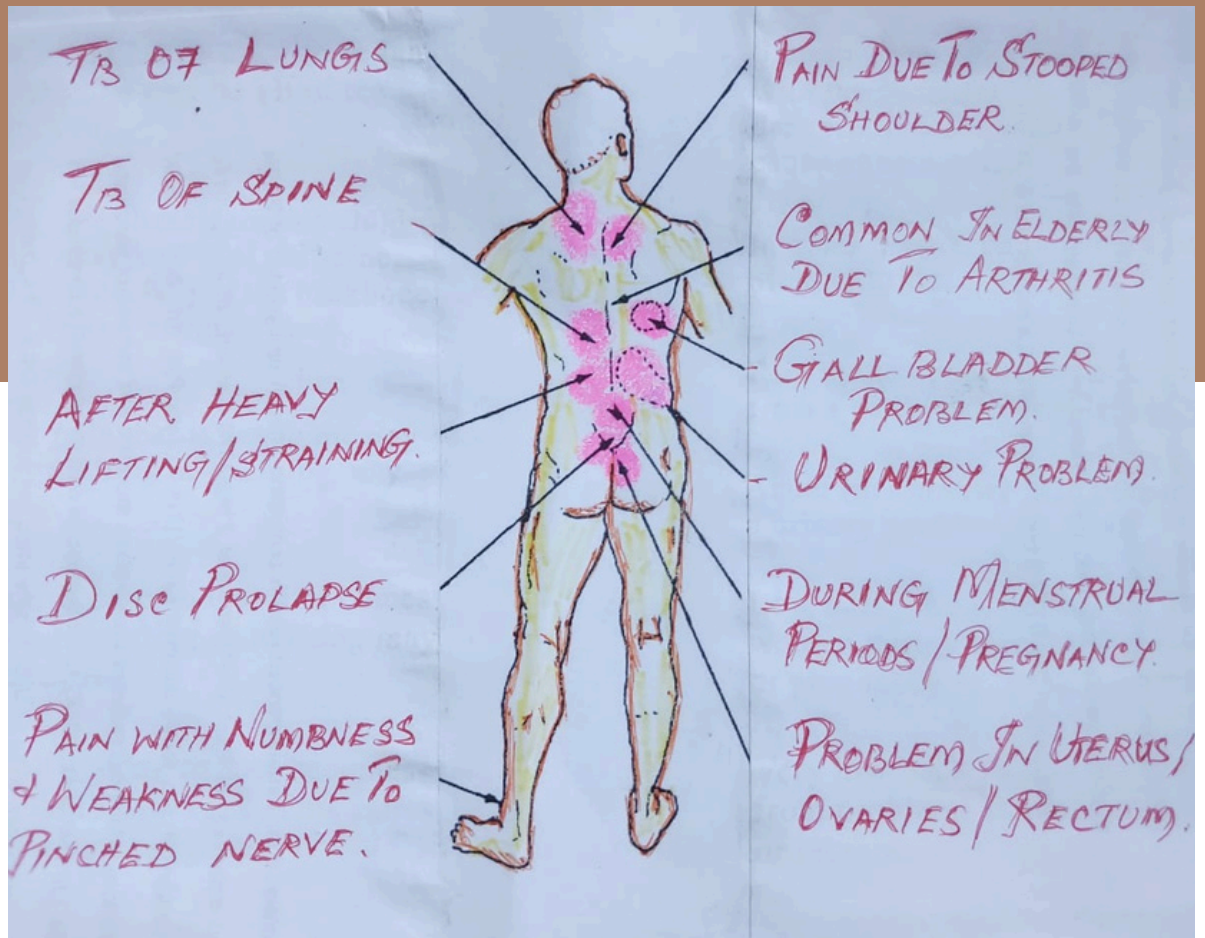 TB OF LUNGS
TB OF SPINE
AFTER HEAVY
LIFTING/STRAINING.
DISC PROLAPSE
PAIN WITH NUMBNESS
& WEAKNESS DUE TO
PINCHED NERVE.
PAIN DUE TO STOOPED
SHOULDER
COMMON IN ELDERLY
DUE TO ARTHRITIS
GALL BLADDER
PROBLEM.
URINARY PROBLEM.
DURING MENSTRUAL
PERIODS/PREGNANCY.
PROBLEM IN UTERUS/
OVARIES/RECTUM.